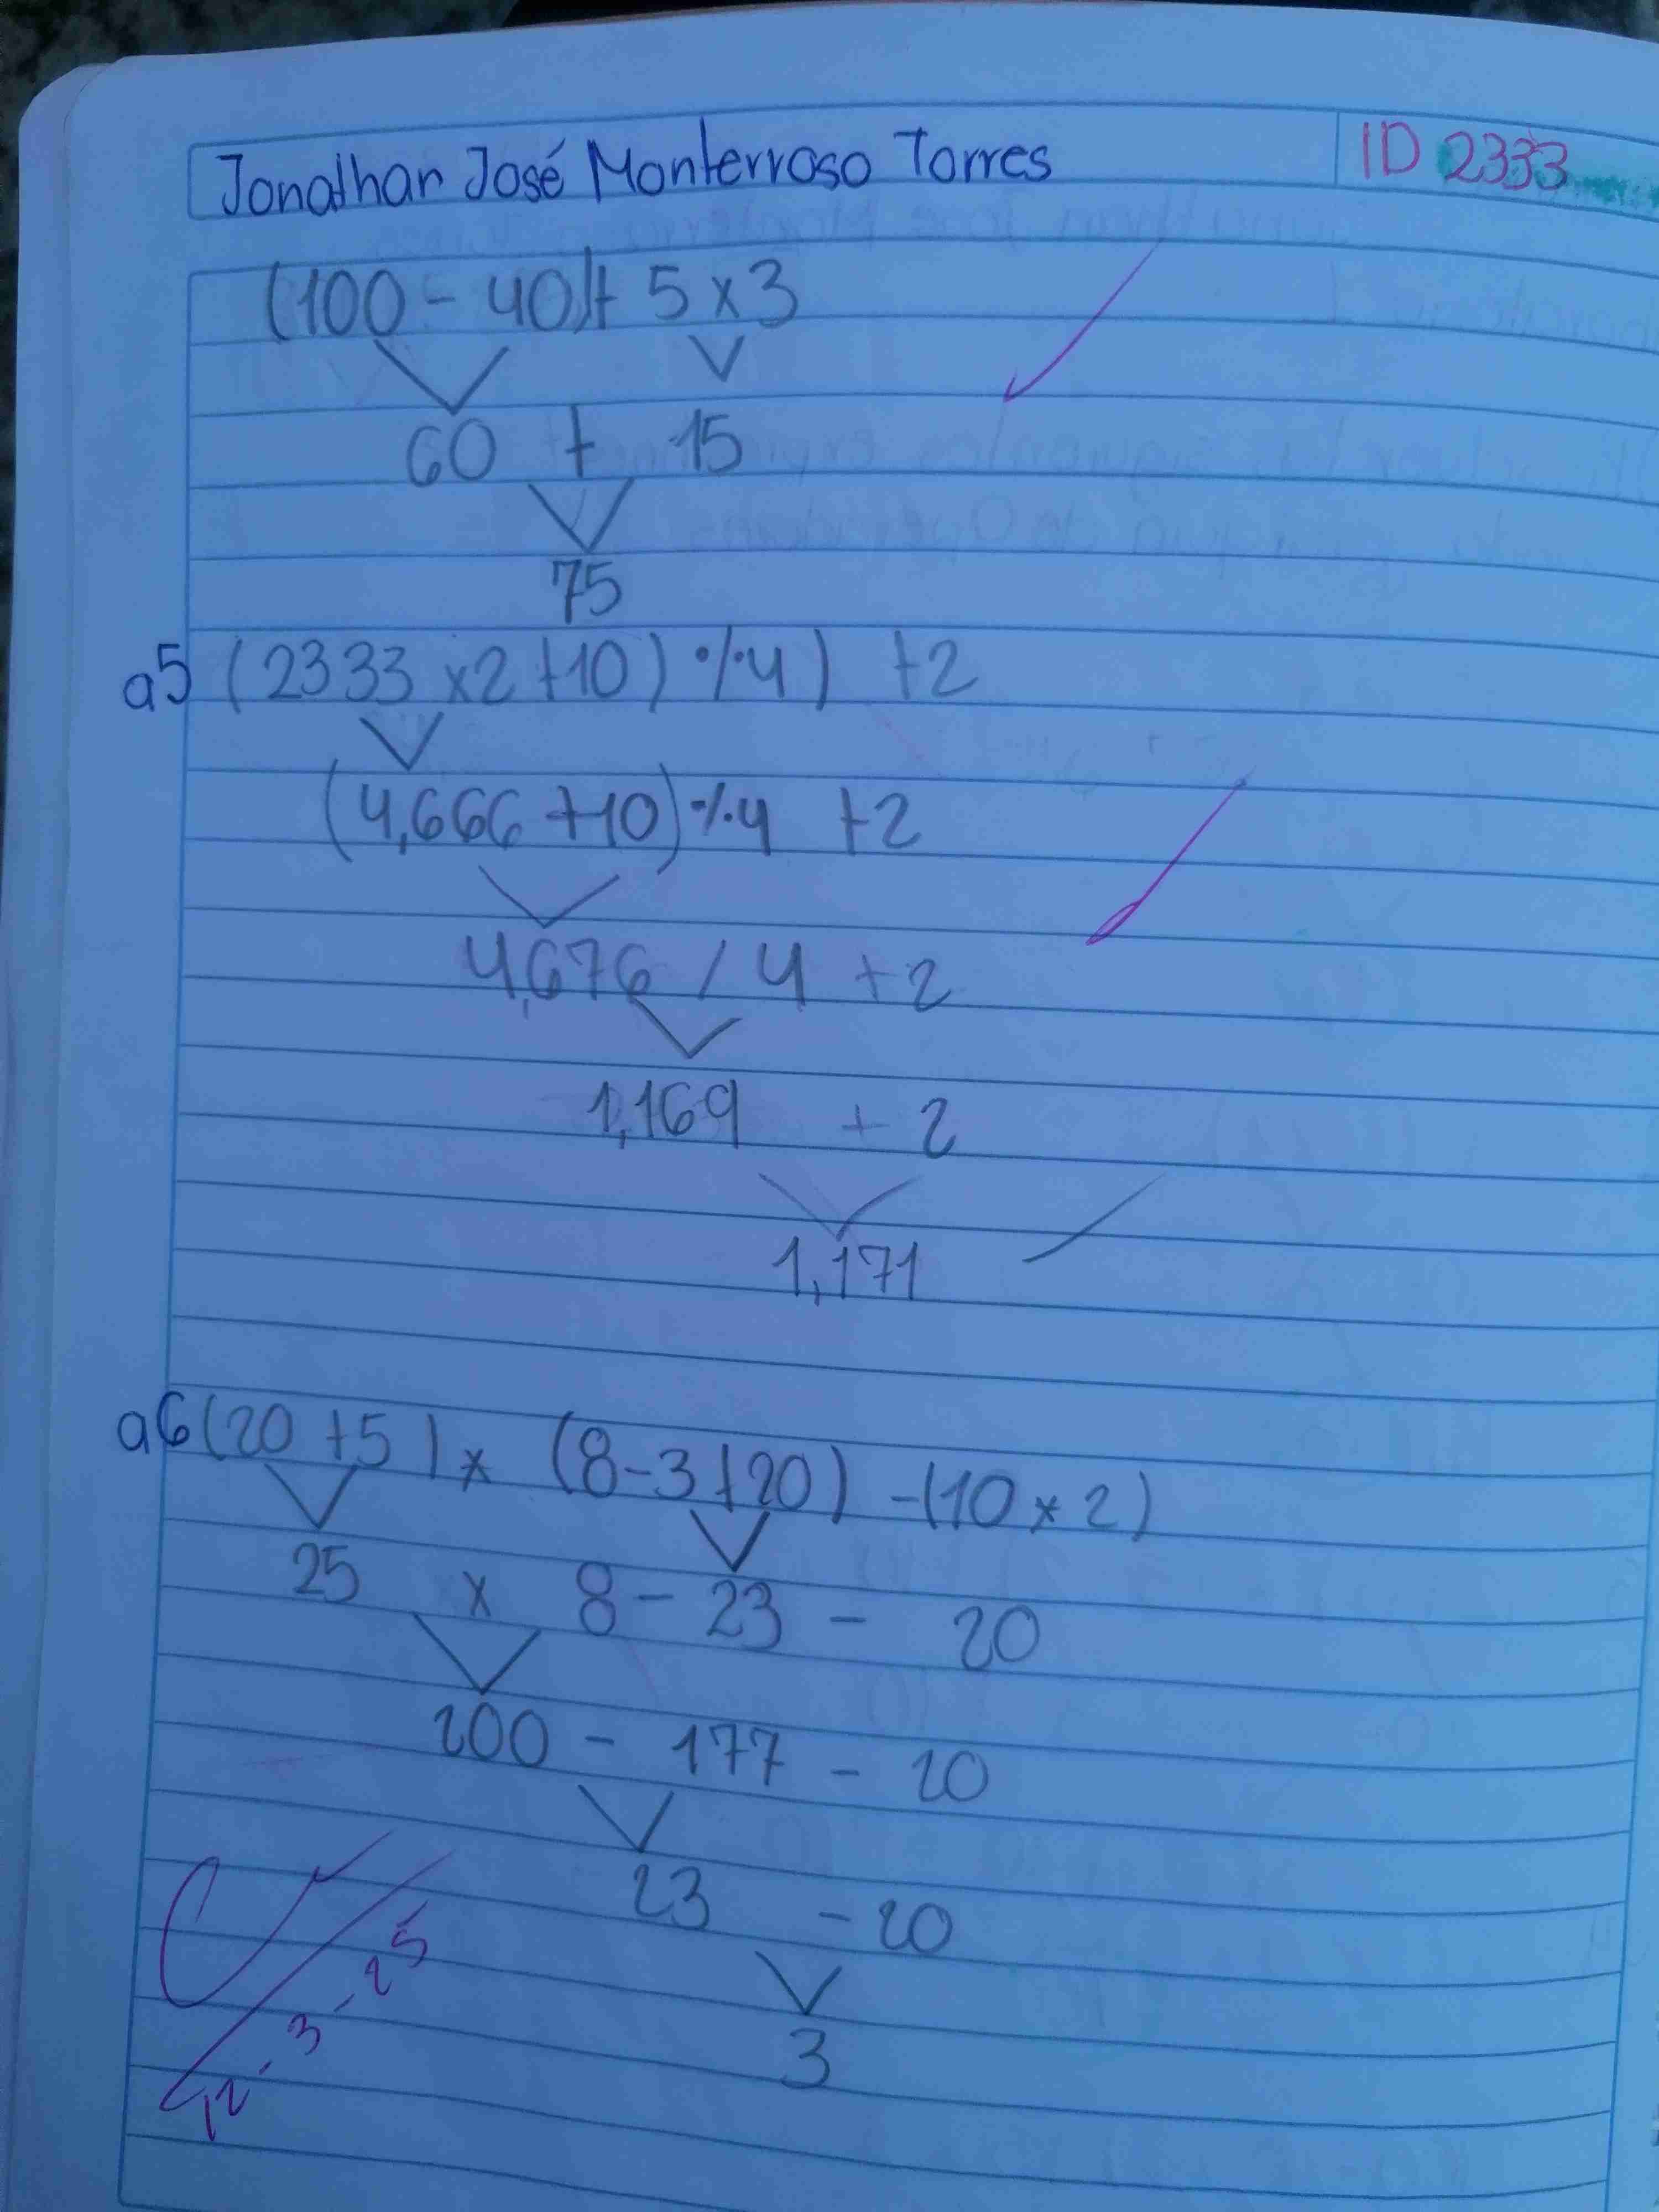 Jonathan José Monterroso Torres ID 2333
(100 - 40)+ 5 x 3
60 + 15
75
a5 (2333 x2 +10) ·/·4) +2
(4,666 +10) ·/·4 +2
4,676 / 4 +2
1,169 + 2
1,171
a6 (20 +5) x (8-3+20) -(10 x 2)
25 x 8 - 23 - 20
200 - 177 - 20
23 - 20
3
12-3-25